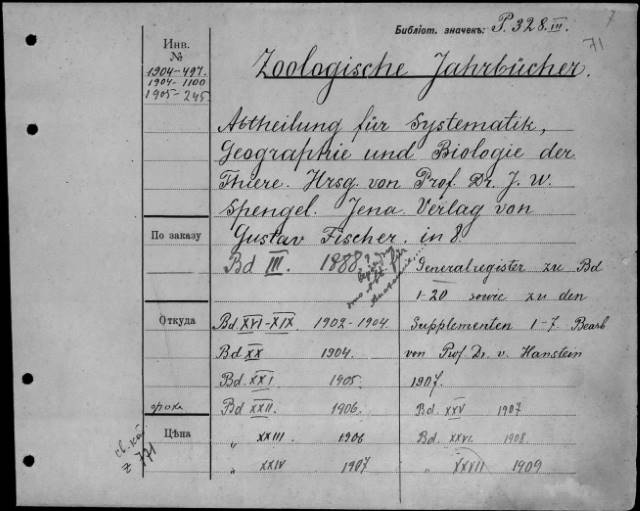 Библіот. значекъ: P. 328.III.
71
Инв.
№
1904-497.
1904-1100
1905-245.
Zoologische Jahrbücher.
Abtheilung für Systematik,
Geographie und Biologie der
Thiere. Hrsg. von Prof. Dr. J. W.
Spengel. Jena. Verlag von
По заказу
Gustav Fischer. in 8.
Bd III. 1888
Generalregister zu Bd
1-20 sowie zu den
Откуда
Bd. XVI-XIX 1902-1904.
Supplementen 1-7 Bearb
Bd XX 1904.
von Prof Dr. v. Hanstein
Bd. XXI 1905.
1907.
Bd XXII. 1906.
Bd. XXV 1907
Цѣна
" XXIII. 1906
Bd. XXVI 1908.
" XXIV 1907
" XXVII 1909
z 771